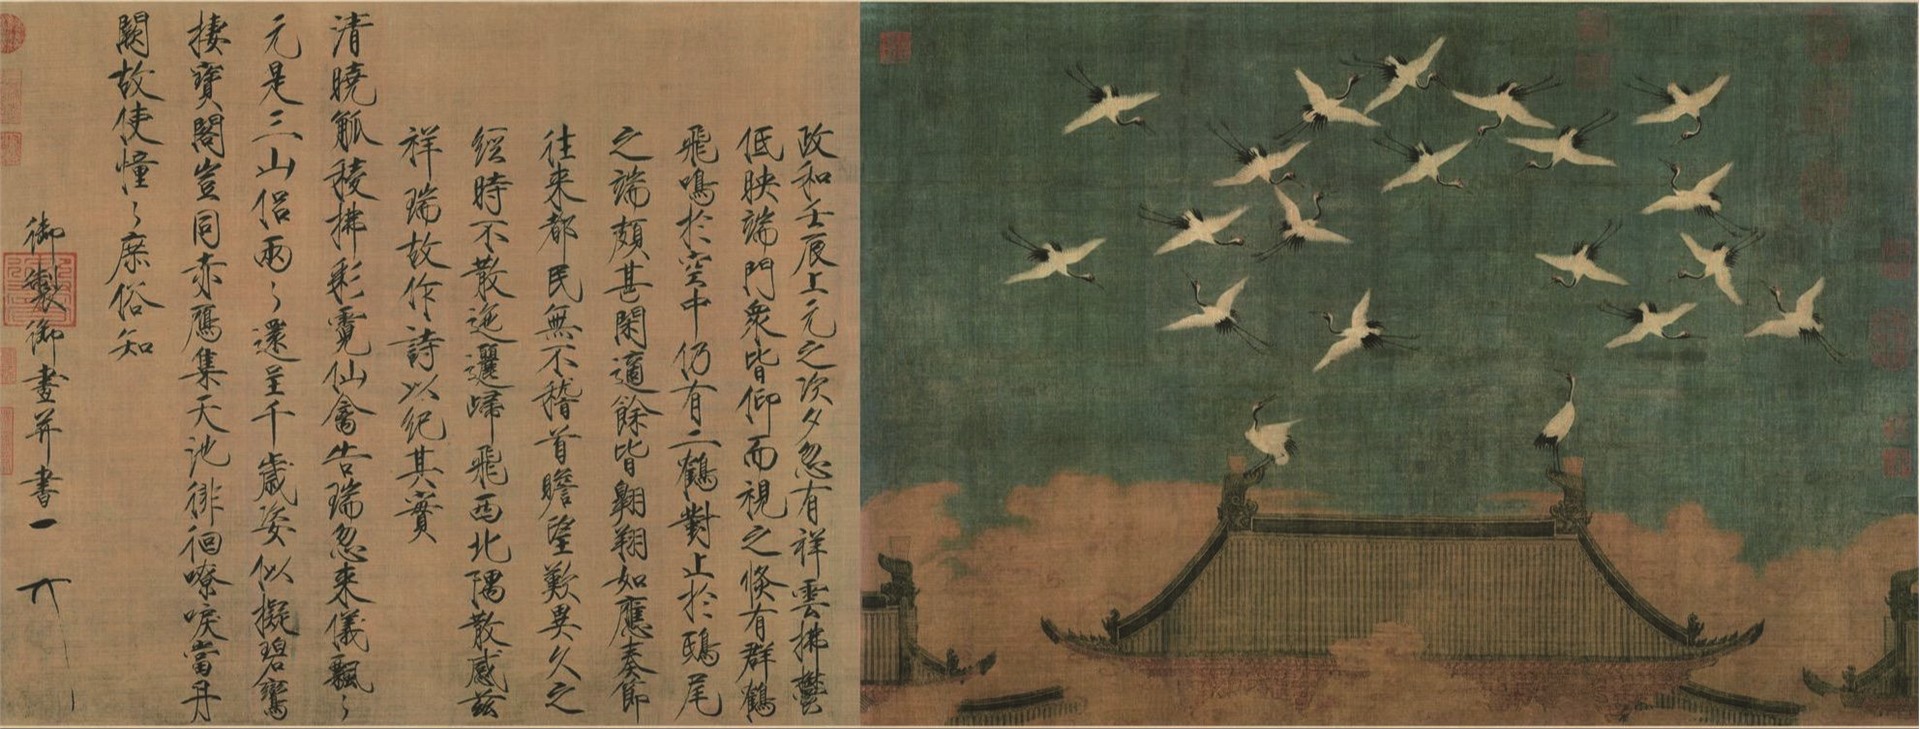 政和壬辰上元之次夕忽有祥雲拂鬱
低映端門衆皆仰而視之倏有群鶴
飛鳴於空中仍有二鶴對止於鴟尾
之端頗甚閑適餘皆翱翔如應奏節
往来都民無不稽首瞻望歎異久之
經時不散迤邐歸飛西北隅散感茲
祥瑞故作詩以紀其實
清曉觚稜拂彩霓仙禽告瑞忽来儀飄〻
元是三山侣兩〻還呈千歲姿似擬碧鸞
棲寶閣豈同赤鴈集天池徘徊嘹唳當丹
闕故使憧〻庶俗知
御製御畫并書